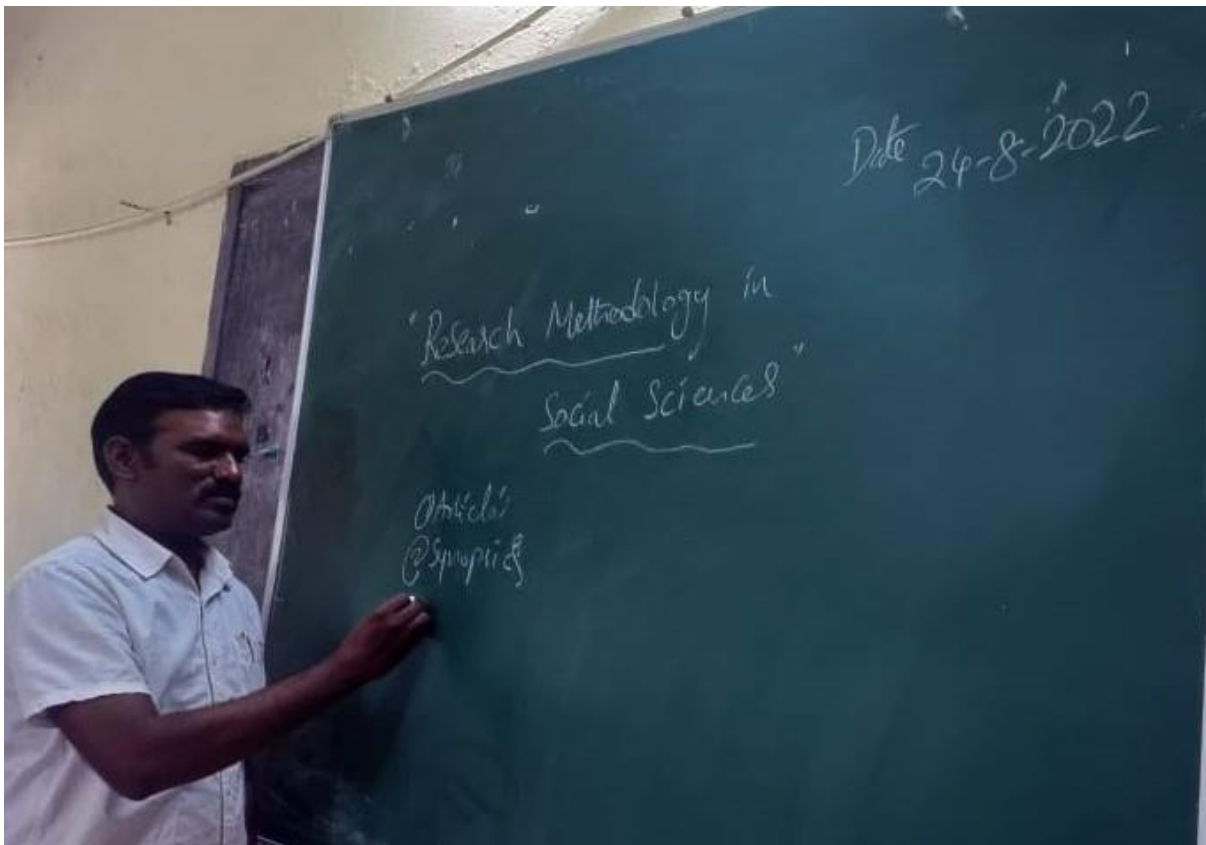 Date 24-8-2022
"Research Methodology in
Social Sciences"
① Article
② Synopsis